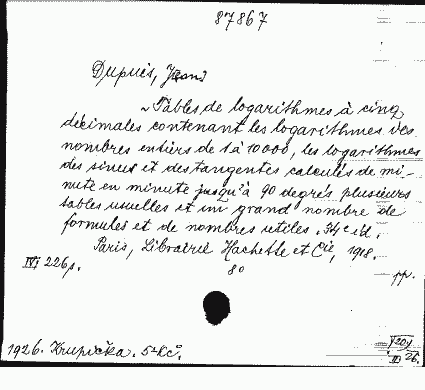 87867
Dupuis, Jean.
~ Tables de logarithmes à cinq
décimales contenant les logarithmes des
nombres entiers de 1 à 10000, les logarithmes
des sinus et des tangentes calculés de mi-
nute en minute jusqu'à 90 degrés plusieurs
tables usuelles et un grand nombre de
formules et de nombres utiles. 34e éd.
Paris, Librairie Hachette et Cie, 1918.
226 p. 8° pp.
1926. Krupička. 5 Kč.